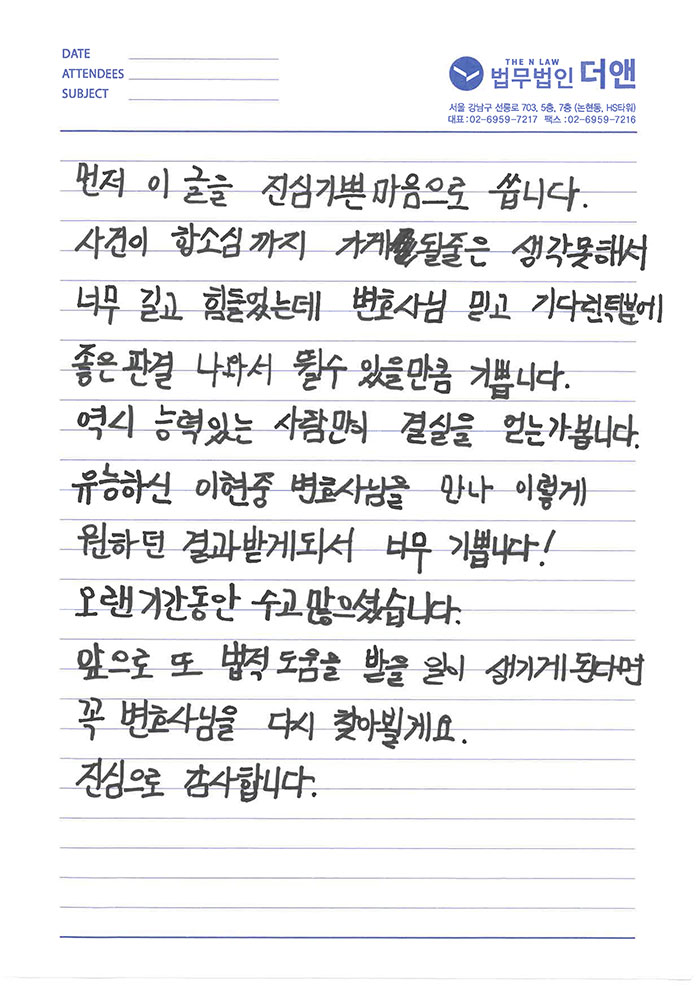 DATE
ATTENDEES
SUBJECT
THE N LAW
법무법인 더앤
서울 강남구 선릉로 703, 5층, 7층 (논현동, HS타워)
대표 : 02-6959-7217 팩스 : 02-6959-7216
먼저 이 글을 진심기쁜마음으로 씁니다.
사건이 항소심까지 가게 될줄은 생각못해서
너무 길고 힘들었는데 변호사님 믿고 기다린덕분에
좋은판결 나와서 뛸수 있을만큼 기쁩니다.
역시 능력있는 사람만이 결실을 얻는가봅니다.
유능하신 이현중 변호사님을 만나 이렇게
원하던 결과받게되서 너무 기쁩니다!
오랜기간동안 수고많으셨습니다.
앞으로 또 법적도움을 받을 일이 생기게된다면
꼭 변호사님을 다시 찾아뵐게요.
진심으로 감사합니다.